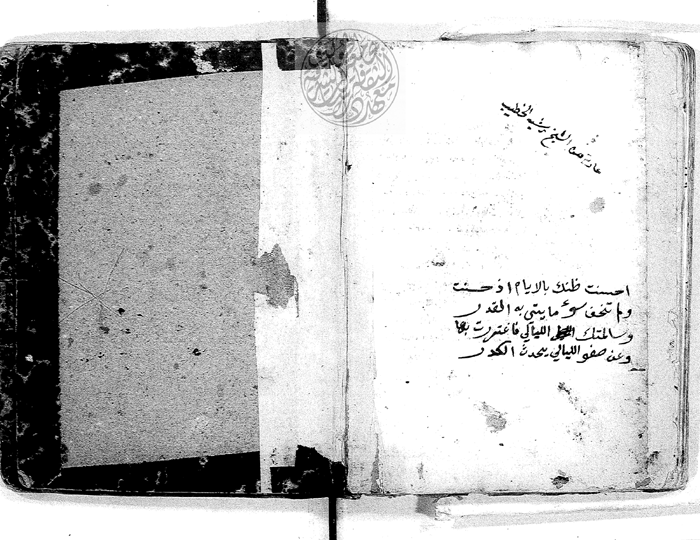 عارية من الشيخ رشيد الخطيب
احسنت ظنك بالايام اذ حسنت
ولم تخف سوء ما يتي به القدر
وسالمتك الليالي فاغتررت بها
وعن صفو الليالي يحدث الكدر